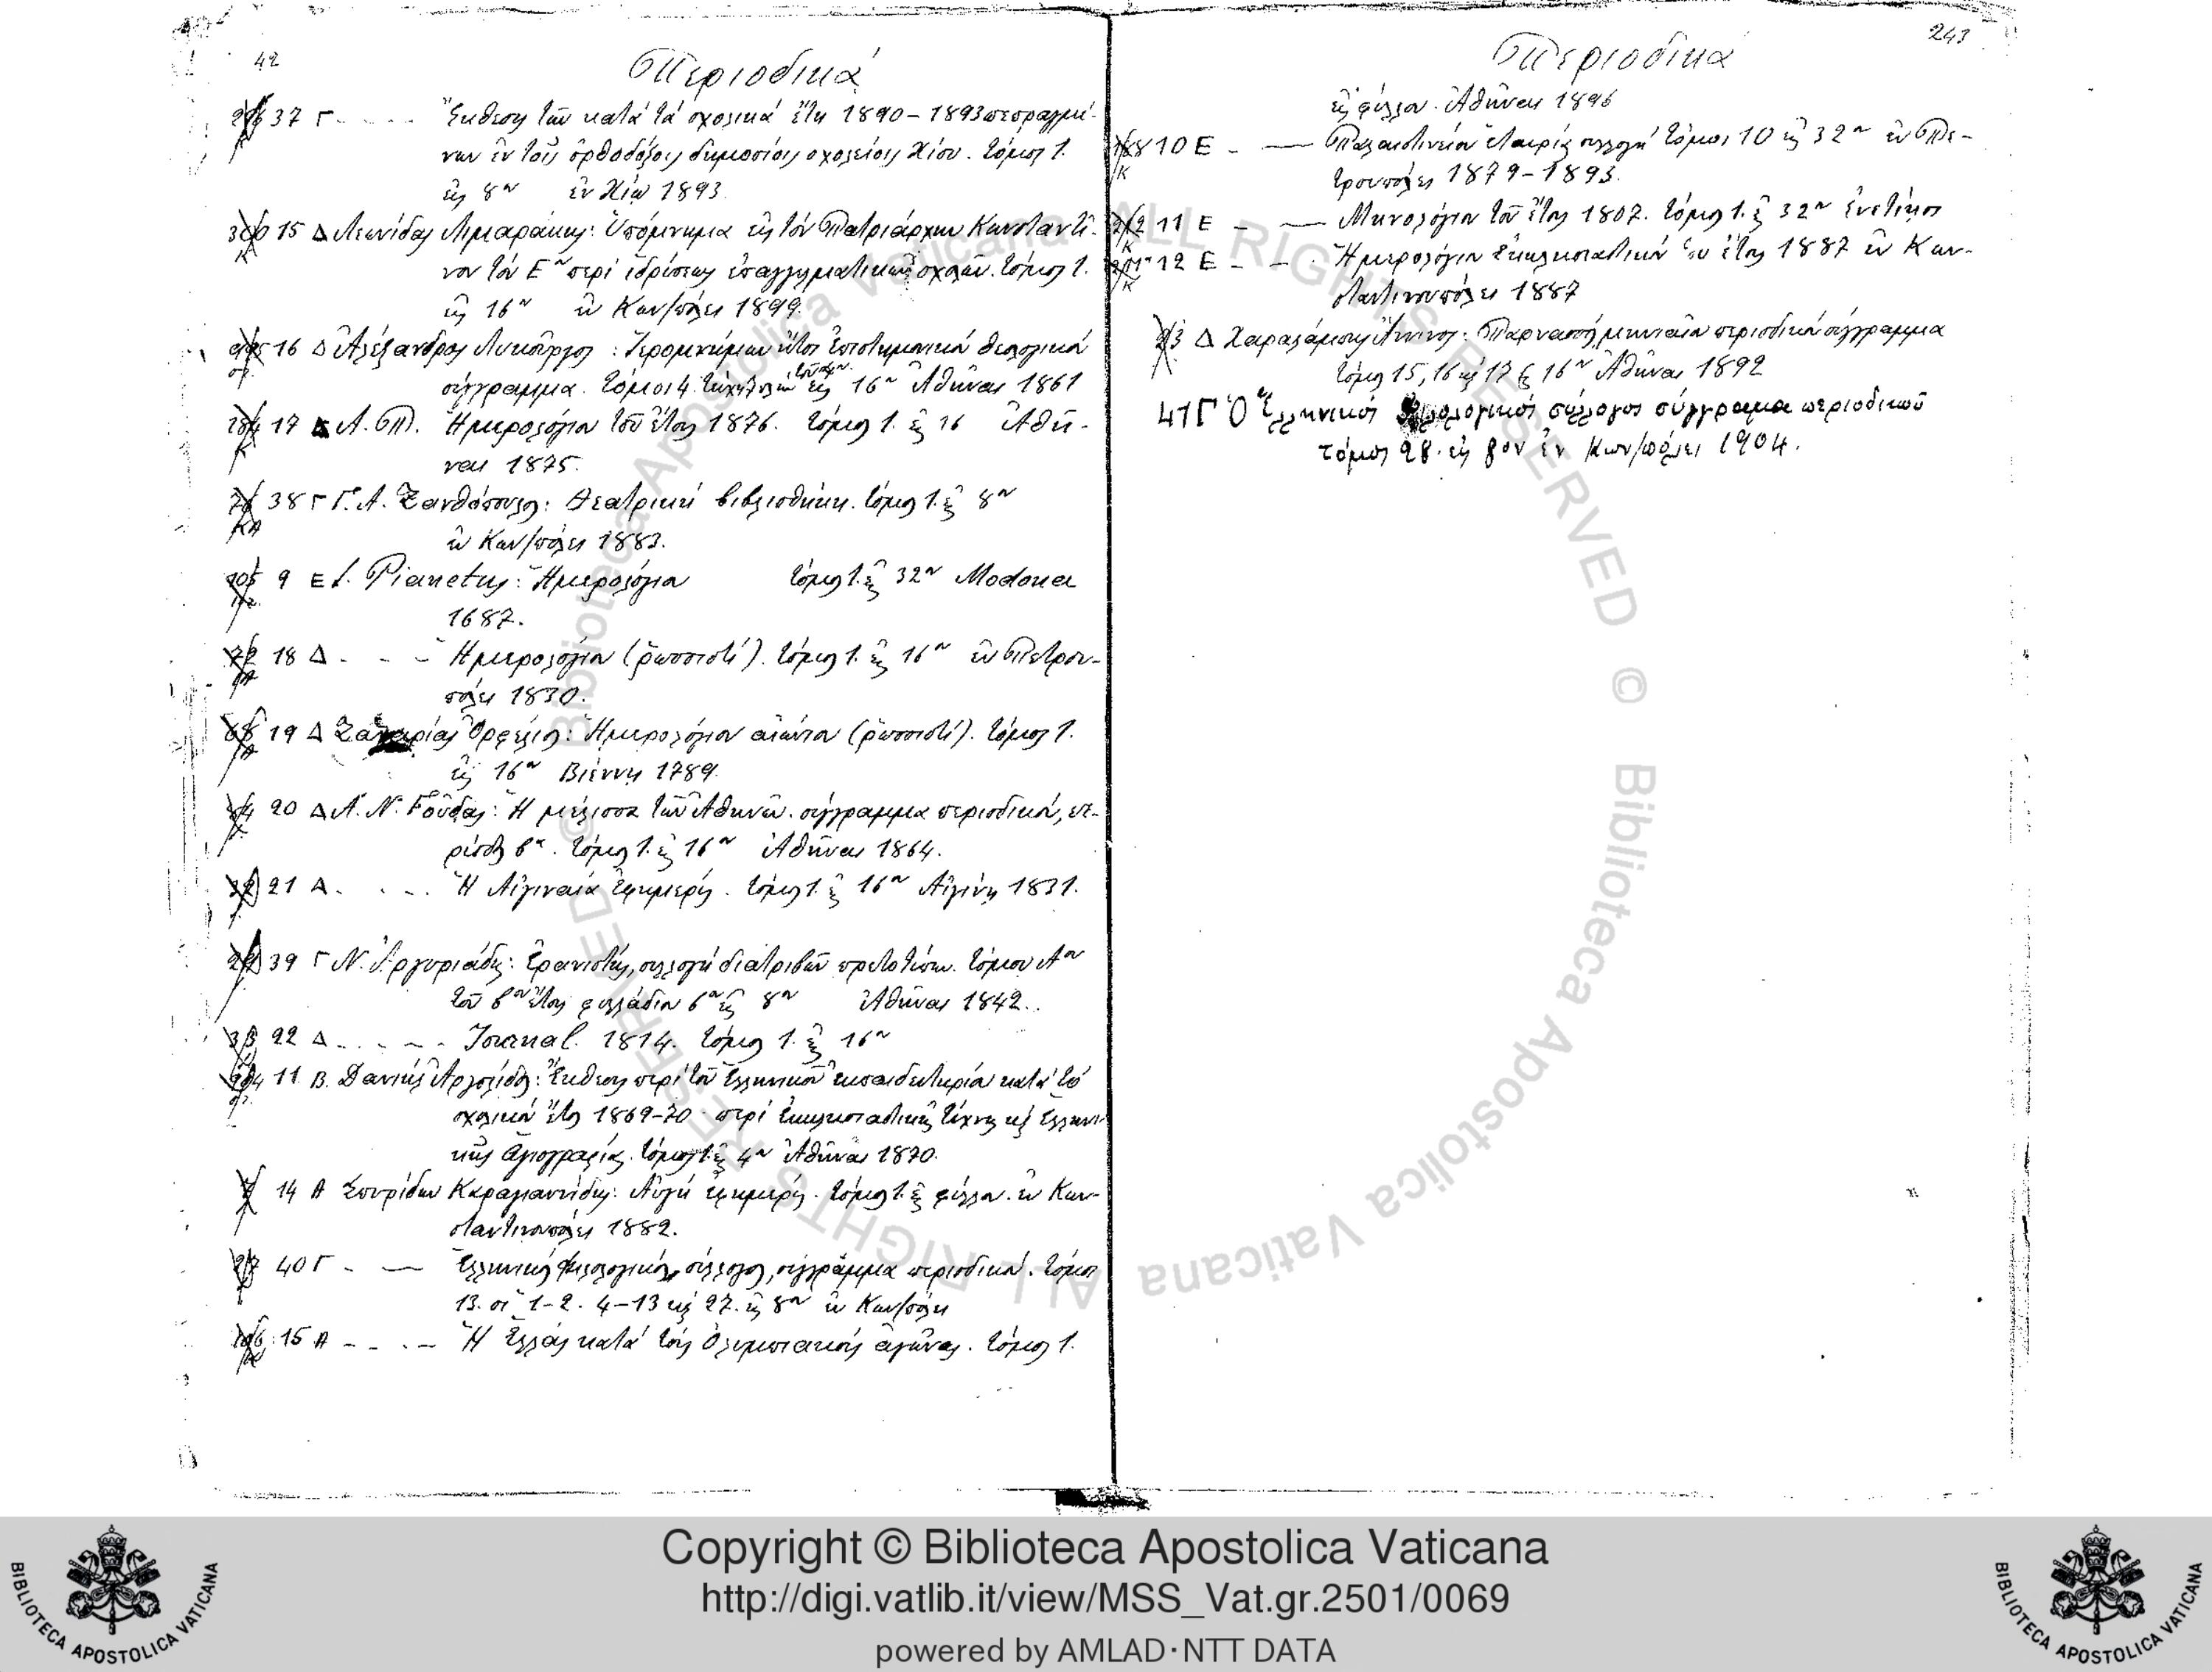 42
Περιοδικά
37 Γ - - - - Ἔκθεσις τῶν κατὰ τὰ σχολικὰ ἔτη 1890 – 1893 πεπραγμέ-
νων ἐν τοῖς ὀρθοδόξοις δημοσίοις σχολείοις Χίου. τόμος 1.
εἰς 8ον ἐν Χίῳ 1893
300 15 Δ Λεωνίδας Λιμαράκης: Ὑπόμνημα εἰς τὸν Πατριάρχην Κωνσταντῖ-
νον τὸν Ε ον περὶ ἱδρύσεως ἐπαγγελματικῶν σχολῶν. τόμος 1.
εἰς 16ον ἐν Κων/πόλει 1899.
16 Δ Ἀλέξανδρος Λυκοῦργος: Ἱερομνήμων ἤτοι ἐπιστημονικὸν θεολογικὸν
σύγγραμμα. τόμοι 4. εἰς 16ον Ἀθῆναι 1861
17 Δ Α. Π. Ἡμερολόγιον τοῦ ἔτους 1876. τόμος 1. εἰς 16 Ἀθῆ-
ναι 1875.
38 Γ Γ. Α. Ξανθόπουλος: Θεατρικὴ βιβλιοθήκη. τόμος 1. εἰς 8ον
ἐν Κων/πόλει 1883.
9 Ε Pianetus: Ἡμερολόγιον τόμος 1. εἰς 32ον Modona
1687.
18 Δ - - - Ἡμερολόγιον (ῥωσσιστί). τόμος 1. εἰς 16ον ἐν Πετρου-
πόλει 1830.
19 Δ Ζαχαρίας Ὀρφελῖος: Ἡμερολόγιον αἰώνιον (ῥωσσιστί). τόμος 1.
εἰς 16ον Βιέννη 1789.
20 Δ Α. Ν. Γούδας: Ἡ μέλισσα τῶν Ἀθηνῶν. σύγγραμμα περιοδικόν, πε-
ρίοδος βα. τόμος 1. εἰς 16ον Ἀθῆναι 1864.
21 Δ. . . . Ἡ Αἰγιναία ἐφημερίς. τόμος 1. εἰς 16ον Αἰγίνη 1831.
39 Γ Ν. Ἀργυριάδης: Ἐρανιστής, συλλογὴ διατριβῶν πρωτοτύπων. τόμου Αου
τοῦ βου ἔτους φυλλάδιον 6ον εἰς 8ον Ἀθῆναι 1842.
33 22 Δ. . - - Journal. 1814. τόμος 1. εἰς 16ον
11 Β. Δανιὴλ Ἀργολίδος: Ἔκθεσις περὶ τοῦ Ἑλληνικοῦ ἐκπαιδευτηρίου κατὰ τὸ
σχολικὸν ἔτος 1869-70 περὶ ἐκκλησιαστικῆς τέχνης καὶ Ἑλληνι-
κῆς ἁγιογραφίας. τόμος 1. εἰς 4ον Ἀθῆναι 1870.
14 Α Σπυρίδων Καραγιαννίδης: Αὐγὴ ἐφημερίς. τόμος 1. εἰς φύλλον. ἐν Κων-
σταντινουπόλει 1882.
40 Γ - — Ἑλληνικὸς φιλολογικὸς σύλλογος, σύγγραμμα περιοδικόν. τόμοι
13. οἱ 1-2. 4-13 καὶ 27. εἰς 8ον ἐν Κων/πόλει
15 Α - - . - Ἡ Ἑλλὰς κατὰ τοὺς Ὀλυμπιακοὺς ἀγῶνας. τόμος 1.
243
Περιοδικά
εἰς φύλλον. Ἀθῆναι 1896
10 Ε - — Παλαιστινείου ἑταιρίας συλλογὴ τόμοι 10 εἰς 32ον ἐν Πε-
τρουπόλει 1879-1893.
212 11 Ε - — Μηνολόγιον τοῦ ἔτους 1807. τόμος 1. εἰς 32ον Ἐνετίῃσι
12 Ε - - Ἡμερολόγιον ἐκκλησιαστικὸν τοῦ ἔτους 1887 ἐν Κων-
σταντινουπόλει 1887
23 Δ Χαραλάμπης Ἄννινος: Παρνασσός, μηνιαῖον περιοδικὸν σύγγραμμα
τόμος 15, 16 καὶ 17 εἰς 16ον Ἀθῆναι 1892
41 Γ Ὁ Ἑλληνικὸς Φιλολογικὸς σύλλογος σύγγραμα περιοδικοῦ
τόμος 28. εἰς 8ον ἐν Κων/πόλει 1904.
© Biblioteca Apostolica Vaticana ALL RIGHTS RESERVED © Biblioteca Apostolica Vaticana ALL RIGHTS RESERVED
Copyright © Biblioteca Apostolica Vaticana
http://digi.vatlib.it/view/MSS_Vat.gr.2501/0069
powered by AMLAD·NTT DATA
BIBLIOTECA APOSTOLICA VATICANA
BIBLIOTECA APOSTOLICA VATICANA